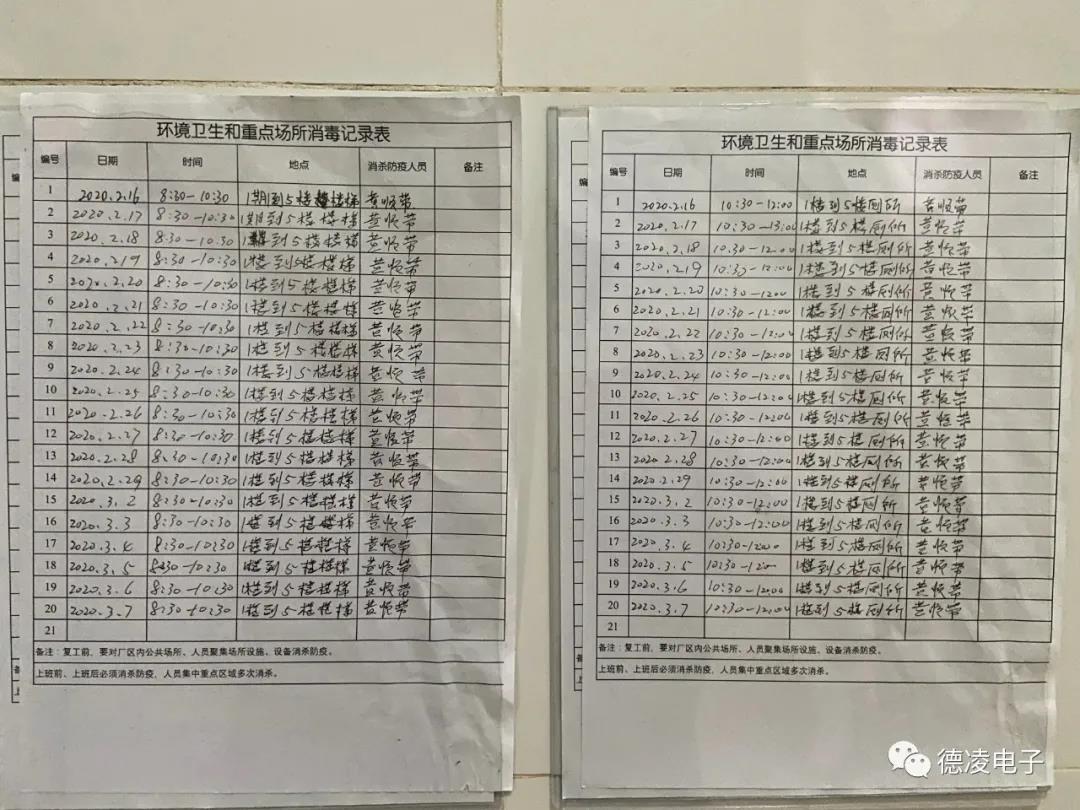 环境卫生和重点场所消毒记录表
编号 日期 时间 地点 消杀防疫人员 备注
1 2020.2.16 8:30-10:30 到5楼楼梯 黄顺带
2 2020.2.17 8:30-10:30 到5楼楼梯 黄顺带
3 2020.2.18 8:30-10:30 到5楼楼梯 黄顺带
4 2020.2.19 8:30-10:30 1楼到5楼楼梯 黄顺带
5 2020.2.20 8:30-10:30 1楼到5楼楼梯 黄顺带
6 2020.2.21 8:30-10:30 1楼到5楼楼梯 黄顺带
7 2020.2.22 8:30-10:30 1楼到5楼楼梯 黄顺带
8 2020.2.23 8:30-10:30 1楼到5楼楼梯 黄顺带
9 2020.2.24 8:30-10:30 1楼到5楼楼梯 黄顺带
10 2020.2.25 8:30-10:30 1楼到5楼楼梯 黄顺带
11 2020.2.26 8:30-10:30 1楼到5楼楼梯 黄顺带
12 2020.2.27 8:30-10:30 1楼到5楼楼梯 黄顺带
13 2020.2.28 8:30-10:30 1楼到5楼楼梯 黄顺带
14 2020.2.29 8:30-10:30 1楼到5楼楼梯 黄顺带
15 2020.3.2 8:30-10:30 1楼到5楼楼梯 黄顺带
16 2020.3.3 8:30-10:30 1楼到5楼楼梯 黄顺带
17 2020.3.4 8:30-10:30 1楼到5楼楼梯 黄顺带
18 2020.3.5 8:30-10:30 1楼到5楼楼梯 黄顺带
19 2020.3.6 8:30-10:30 1楼到5楼楼梯 黄顺带
20 2020.3.7 8:30-10:30 1楼到5楼楼梯 黄顺带
21
备注：复工前，要对厂区内公共场所、人员聚集场所设施、设备消杀防疫。
上班前、上班后必须消杀防疫，人员集中重点区域多次消杀。
环境卫生和重点场所消毒记录表
编号 日期 时间 地点 消杀防疫人员 备注
1 2020.2.16 10:30-12:00 1楼到5楼厕所 黄顺带
2 2020.2.17 10:30-13:00 1楼到5楼厕所 黄顺带
3 2020.2.18 10:30-12:00 1楼到5楼厕所 黄顺带
4 2020.2.19 10:30-12:00 1楼到5楼厕所 黄顺带
5 2020.2.20 10:30-1200 1楼到5楼厕所 黄顺带
6 2020.2.21 10:30-12:00 1楼到5楼厕所 黄顺带
7 2020.2.22 10:30-12:00 1楼到5楼厕所 黄顺带
8 2020.2.23 10:30-12:00 1楼到5楼厕所 黄顺带
9 2020.2.24 10:30-12:00 1楼到5楼厕所 黄顺带
10 2020.2.25 10:30-12:00 1楼到5楼厕所 黄顺带
11 2020.2.26 10:30-12:00 1楼到5楼厕所 黄顺带
12 2020.2.27 10:30-12:00 1楼到5楼厕所 黄顺带
13 2020.2.28 10:30-12:00 1楼到5楼厕所 黄顺带
14 2020.2.29 10:30-12:00 1楼到5楼厕所 黄顺带
15 2020.3.2 10:30-12:00 1楼到5楼厕所 黄顺带
16 2020.3.3 10:30-12:00 1楼到5楼厕所 黄顺带
17 2020.3.4 10:30-12:00 1楼到5楼厕所 黄顺带
18 2020.3.5 10:30-1200 1楼到5楼厕所 黄顺带
19 2020.3.6 10:30-12:00 1楼到5楼厕所 黄顺带
20 2020.3.7 10:30-12:00 1楼到5楼厕所 黄顺带
21
备注：复工前，要对厂区内公共场所、人员聚集场所设施、设备消杀防疫。
上班前、上班后必须消杀防疫，人员集中重点区域多次消杀。
德凌电子